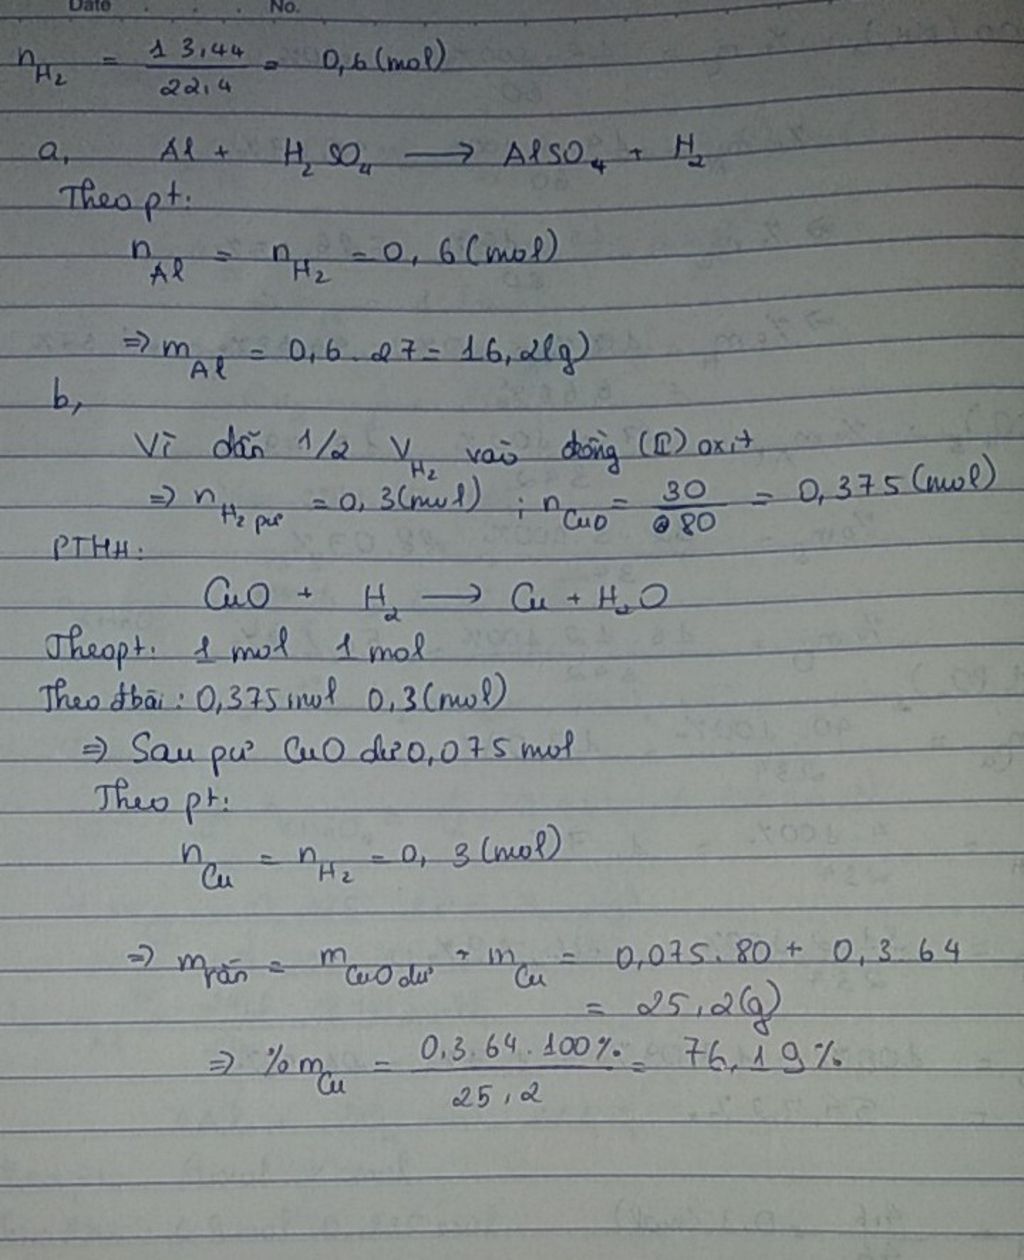 Date . . No.
n_H₂ = 13,44/22,4 = 0,6 (mol)
a, Al + H₂SO₄ ⟶ AlSO₄ + H₂
Theo pt:
n_Al = n_H₂ = 0,6 (mol)
⇒ m_Al = 0,6 . 27 = 16,2 (g)
b,
Vì dẫn 1/2 V_H₂ vào đồng (II) oxit
⇒ n_H₂ pư = 0,3 (mol) ; n_CuO = 30/80 = 0,375 (mol)
PTHH:
CuO + H₂ ⟶ Cu + H₂O
Theo pt: 1 mol 1 mol
Theo đbài: 0,375 mol 0,3 (mol)
⇒ Sau pư CuO dư 0,075 mol
Theo pt:
n_Cu = n_H₂ = 0,3 (mol)
⇒ m_rắn = m_CuO dư + m_Cu = 0,075 . 80 + 0,3 . 64
= 25,2 (g)
⇒ % m_Cu = 0,3 . 64 . 100%/25,2 = 76,19%